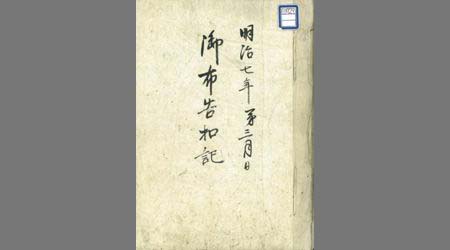 明治七年第三月日
御布告扣記